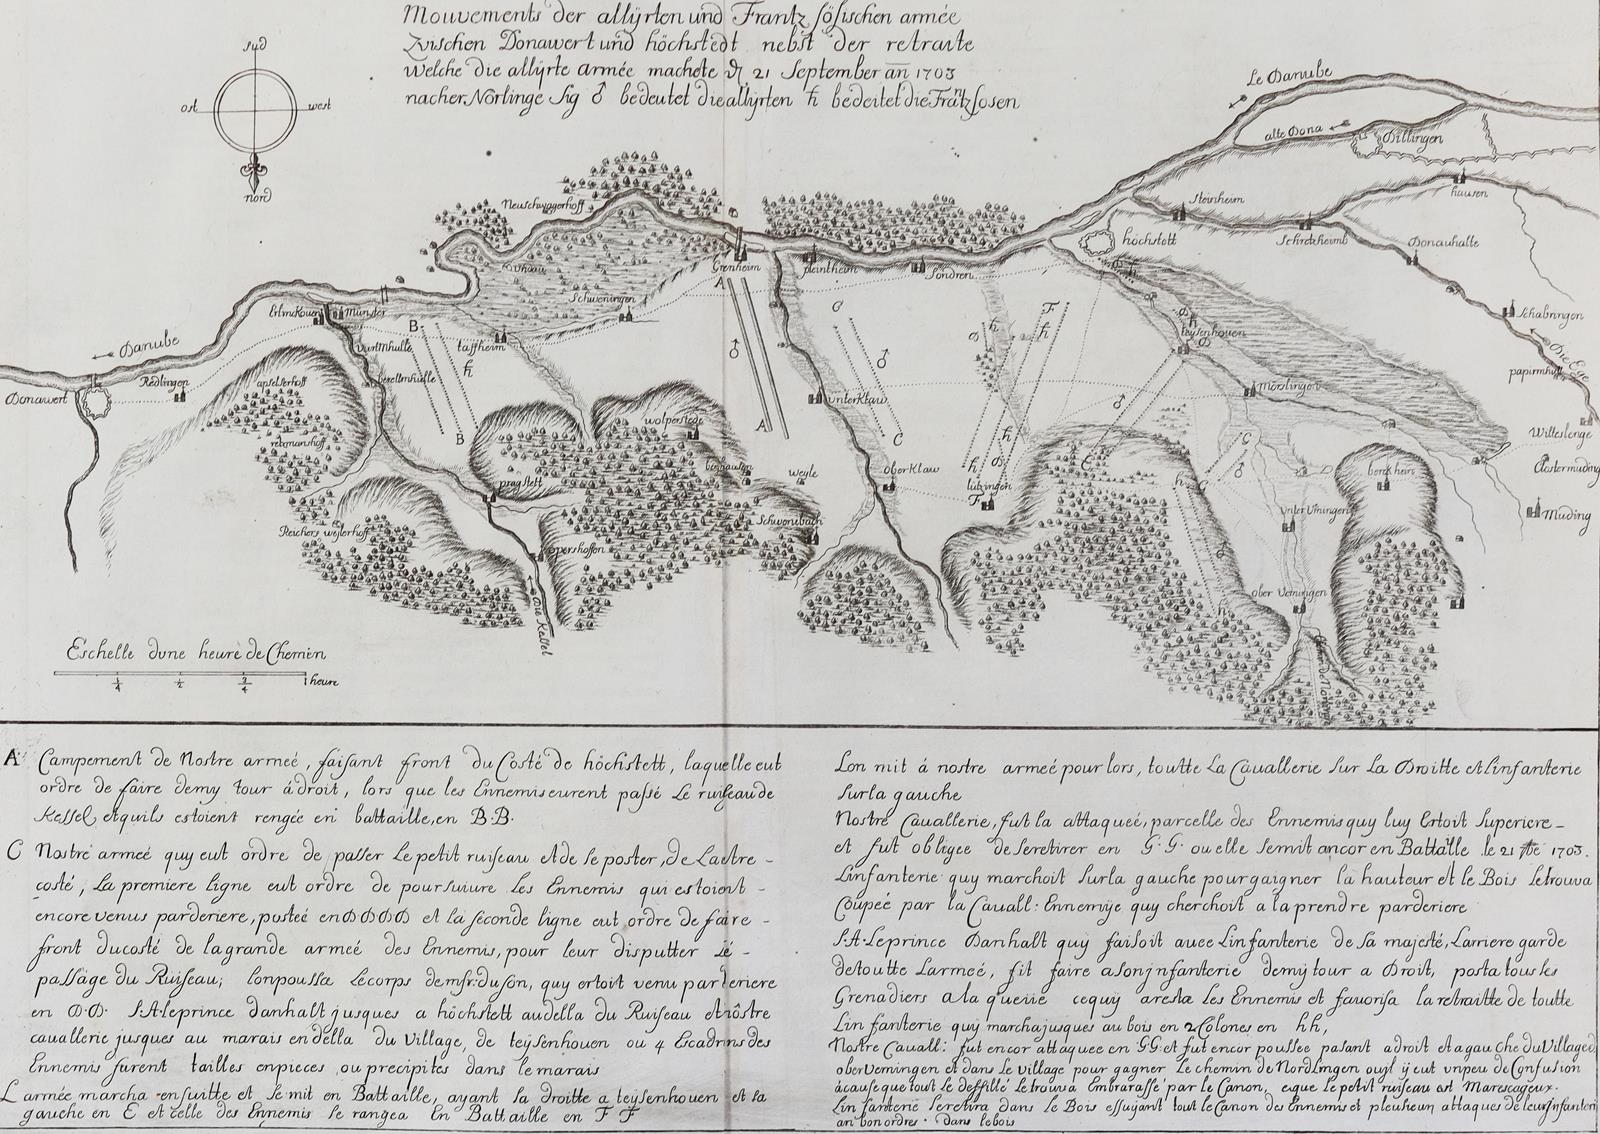 Mouvements der allÿrten und Frantzsösischen armée
Zvischen Donawert und höchstedt nebst der retraite
welche die allÿrte armée machete 21 September an 1703
nacher Nörlinge sig ♂ bedeutet die allÿrten ♄ bedeitet die Frantzsosen
sud
ost
west
nord
Le Danube
alte Dona
Dillingen
hausen
Steinheim
Schretzheimb
Donauhalte
höchstett
Neuschwggerhoff
Grenheim
pleintheim
Sondren
Schweningen
Erlinckouen
Münster
taffheim
Danube
Redlingen
Donawert
apfelserhoff
B
B
A
A
C
C
F
teÿsenhouen
Mörslingen
Schabringen
Die Ege
papirmhull
Witteslenge
Clostermuding
Muding
unterKlaw
oberKlaw
lützingen
F
wolperstede
weyle
Schwenebach
pragstett
opershoffen
Reichers weÿlerhoff
Die Kessel
berckheis
unter Viningen
ober Veiningen
G
G
Eschelle dune heure de Chemin
1/4 1/2 3/4 1 heure
A Campement de Nostre armeé, faisant front du Costé de höchstett, laquelle eut
ordre de faire demy tour ádroit, lors que les Ennemis eurent passé Le ruiseau de
Kessel, et quils estoient rengée en battaille, en B.B.
C Nostre armeé quy eut ordre de passer Le petit ruiseau et de se poster, de Lautre -
costé, La premiere ligne eut ordre de poursuiure les Ennemis qui estoient -
encore venus parderiere, posteé en D D D D et la seconde ligne eut ordre de faire -
front ducosté de lagrande armeé des Ennemis, pour leur disputter lé -
passàge du Ruiseau; lonpoussa Lecorps demsr: duson, quy ertoit venu parderiere
en D.D. S.A. leprince danhalt jusques a höchstett audella du Ruiseau et nôstre
cauallerie jusques au marais en della du village, de teÿsenhouen ou 4 Escadrns des
Ennemis furent tailles enpieces, ou precipités dans le marais
L armée marcha ensuitte et se mit en Battaille, ayant la droitte a teÿsenhouen et la
gauche en E et celle des Ennemis se rangea En Battaille en F F
Lon mit á nostre armeé pour lors, toutte La Cauallerie sur La Droitte et linfanterie
sur la gauche
Nostre Cauallerie, fut la attaqueé, parcelle des Ennemis quy luy Ertoit superiere -
et fut obligee de seretirer en G.G. ou elle semit ancor en Battaille le 21 1703.
Linfanterie quy marchoit surla gauche pour gaigner la hauteur et le Bois se trouva
Coupée par la Cauall: Ennemije quy cherchoit a la prendre parderiere
S.A. Leprince Danhalt quy faisoit auee Linfanterie de sa majesté, Larriere garde
detoutte Larmeé, fit faire asonjnfanterie demÿ tour a Droit, posta tous les
Grenadiers a la queue cequÿ aresta les Ennemis et fauorisa la retraitte de toutte
Linfanterie quÿ marcha jusques au bois en 2 Colones en hh,
Nostre Cauall: fut encor attaquee en GG et fut encor poussee pasant adroit et agauche du Village d
oberVemingen et dans Le village pour gagner Le chemin de Nordlingen ouyl ÿ eut unpeu de Confusion
àcause que tout Le deffillé se trouva Embrarassé par le Canon, eque le petit ruiseau est Marescageux.
Linfanterie seretira dans le Bois essujant tout le Canon des Ennemis et pleusieurs attaques de leur Jnfanteri
an bon ordres. dans lebois